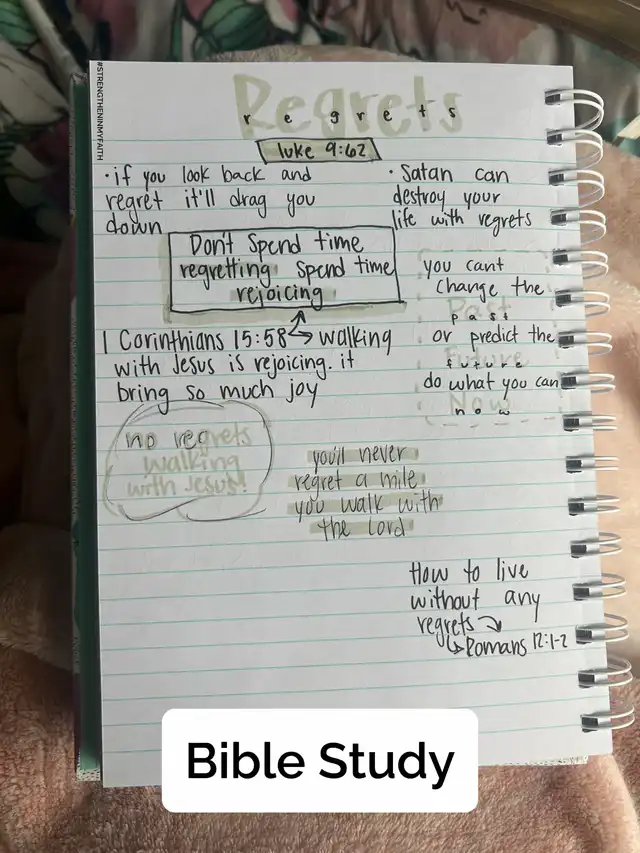 #STRENGTHENINMYFAITH
Regrets
r e g r e t s
luke 9:62
• if you look back and
regret it'll drag you
down
• Satan can
destroy your
life with regrets
Don't spend time
regretting spend time
rejoicing
you cant
change the
Past
past
or predict the
Future
future
do what you can
Now
now
1 Corinthians 15:58 ↳ walking
with Jesus is rejoicing. it
bring so much joy
no regrets
walking
with Jesus!
you'll never
regret a mile
you walk with
the lord
How to live
without any
regrets
↳ Romans 12:1-2
Bible Study